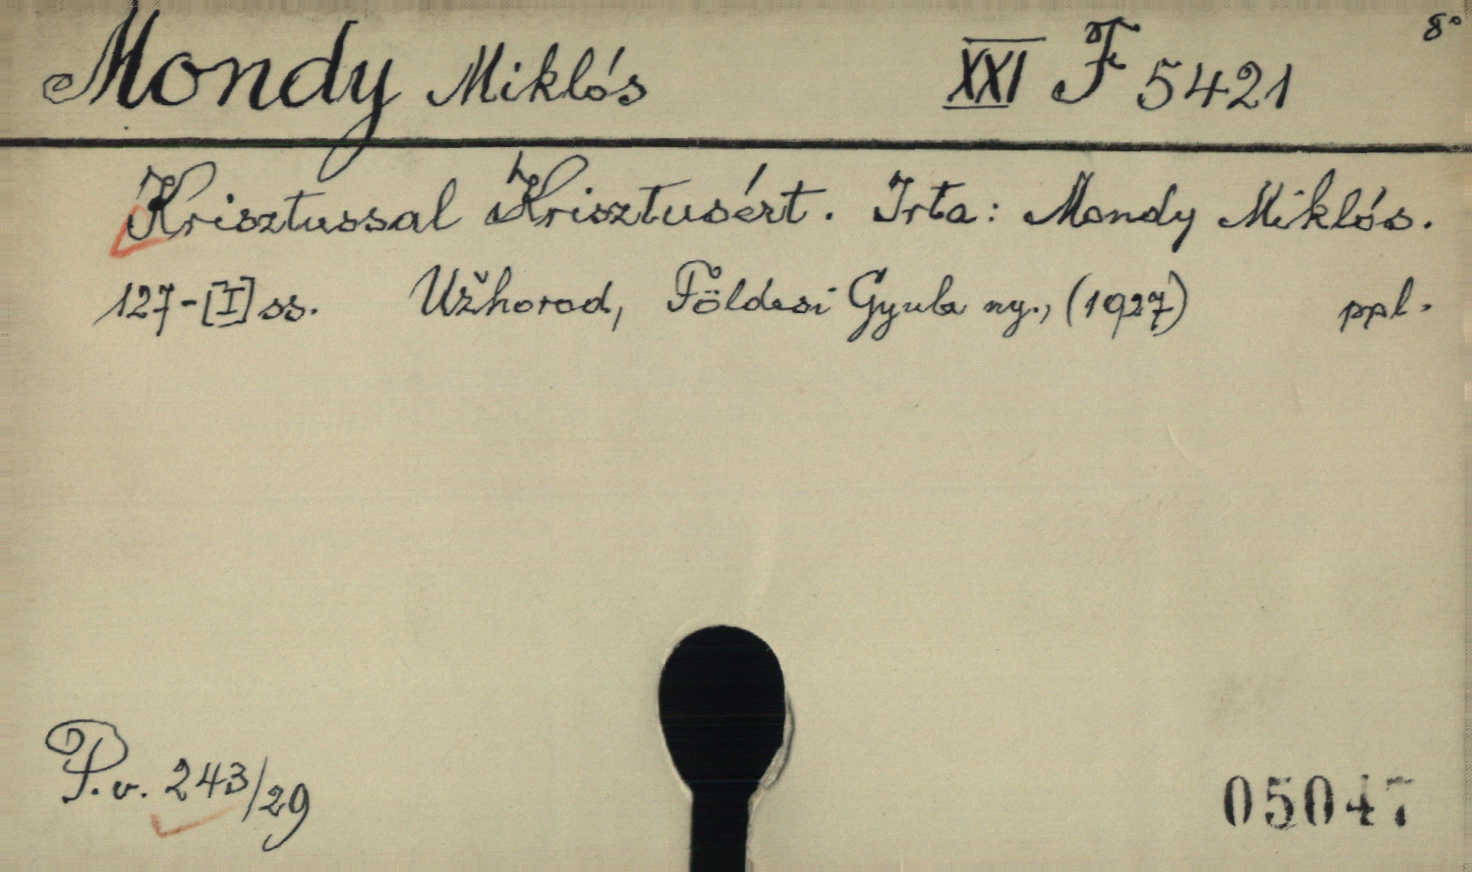 Mondy Miklós XXI F 5421 8°
Krisztussal Krisztusért. Irta: Mondy Miklós.
127-[I] ss. Užhorod, Földesi Gyula ny., (1927) ppl.
P.v. 243/29
05047